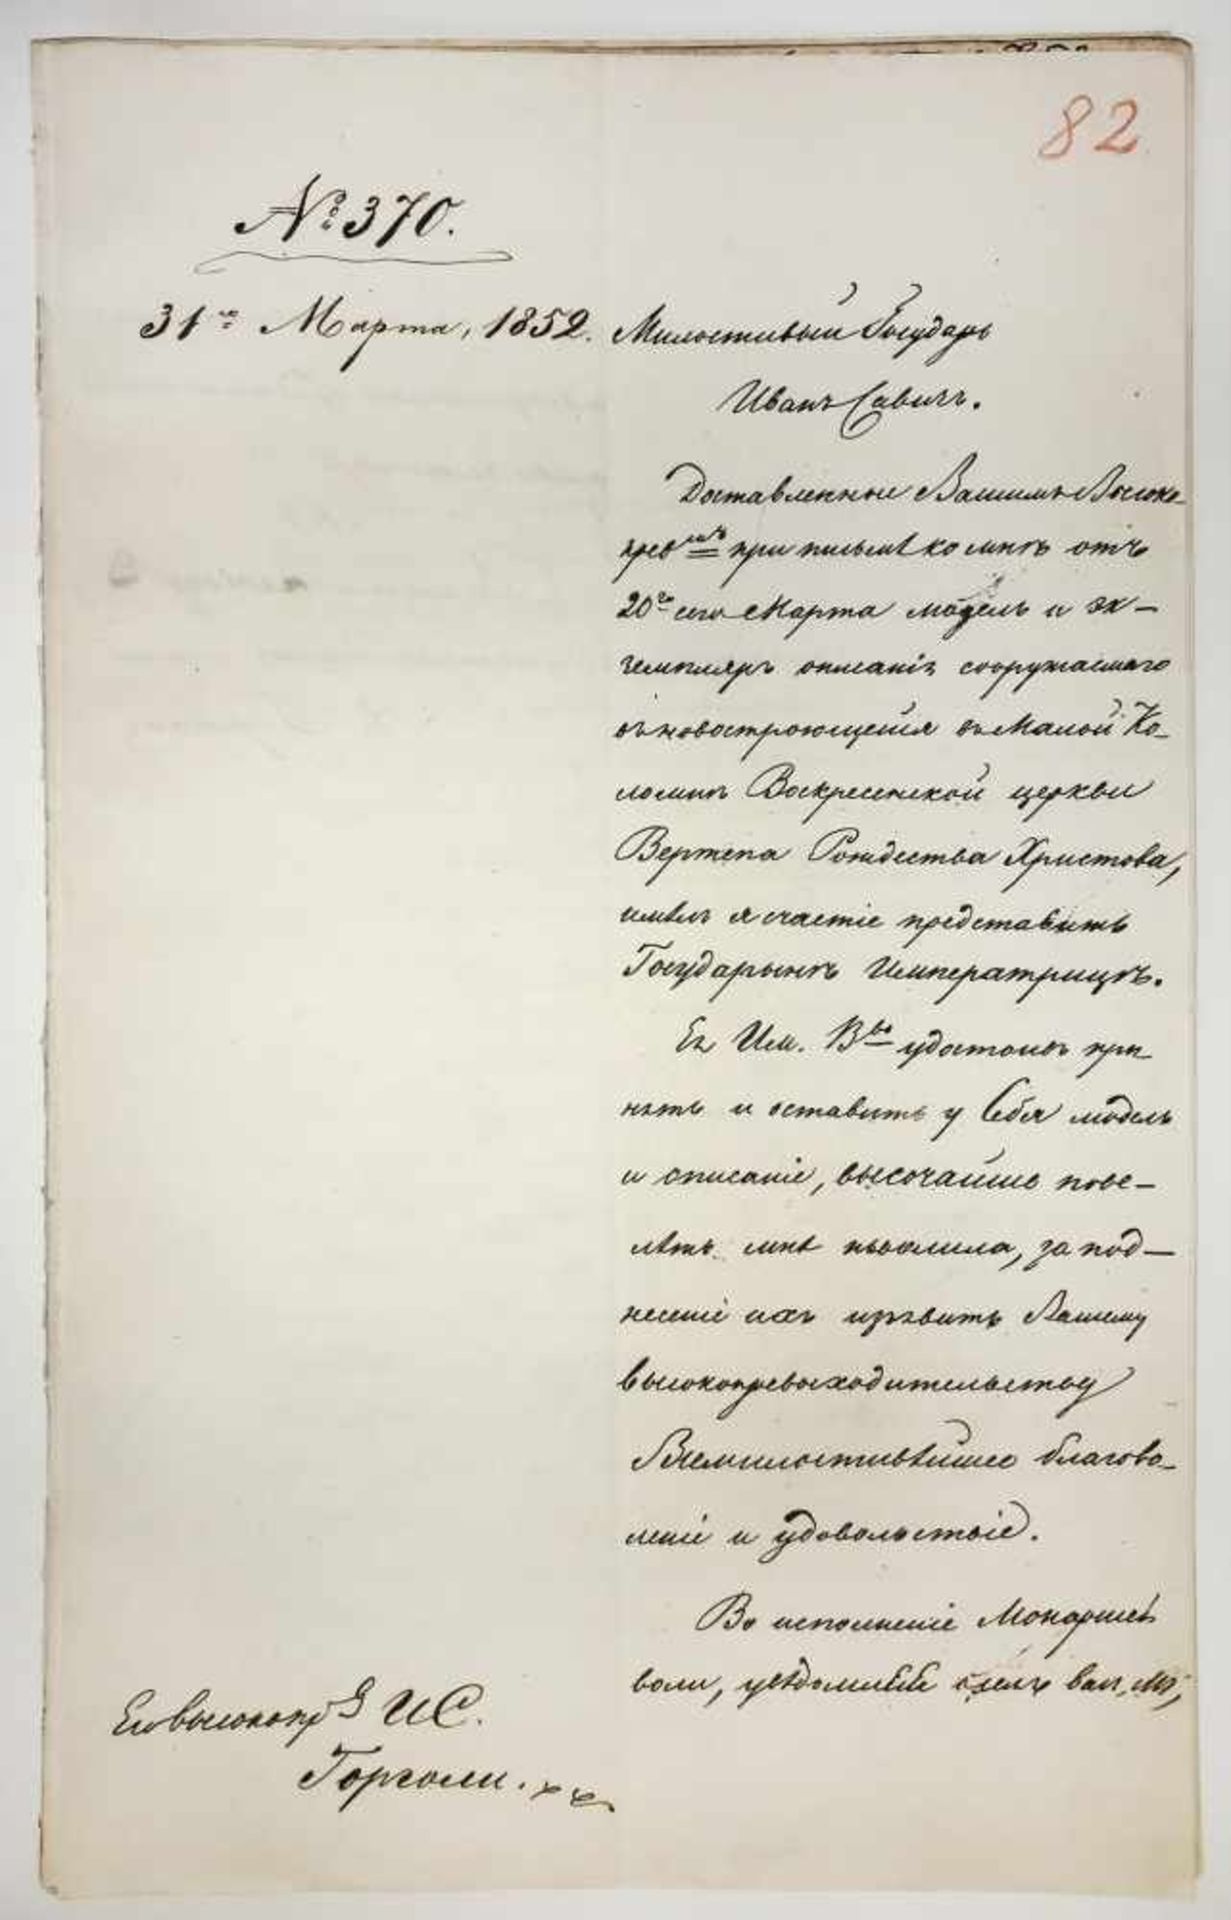 82
№ 370.
31го Марта, 1852.
Милостивый Государь
Иванъ Савичъ.
Доставленные Вашимъ Высоко-
прев-мъ при письмѣ ко мнѣ отъ
20го сего Марта модель и эк-
земпляръ описанія сооружаемаго
въ новостроющейся въ Малой Ко-
ломнѣ Воскресенской церкви
Вертепа Рождества Христова,
имѣлъ я счастіе представить
Государынѣ Императрицѣ.
Ея Им. Вво удостоивъ при-
нять и оставить у Себя модель
и описаніе, высочайше пове-
лѣть мнѣ изволила, за под-
несеніе ихъ изъявить Вашему
высокопревосходительству
Всемилостивѣйшее благово-
леніе и удовольствіе.
Во исполненіе Монаршей
воли, увѣдомляя
Его высокопр. И С.
Горголи.